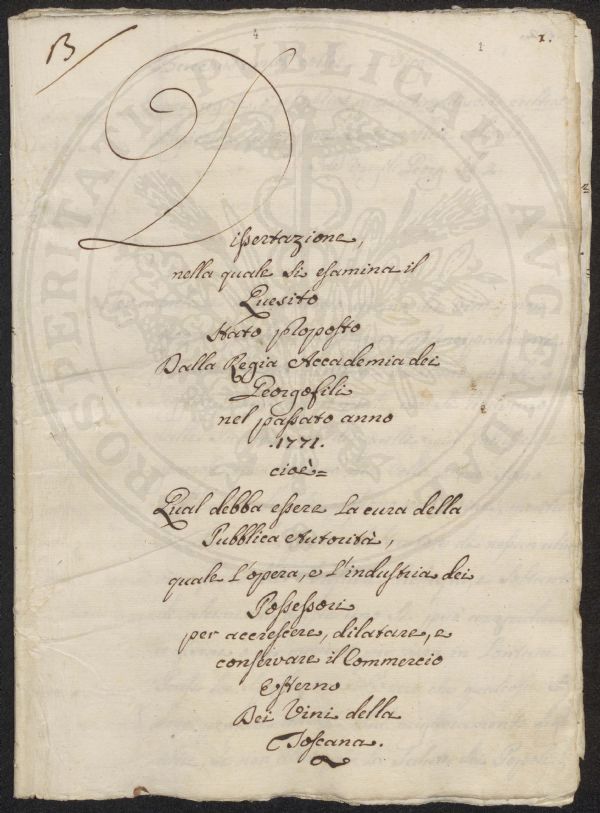 B
4
1
1.
Dissertazione,
nella quale si esamina il
Quesito
stato proposto
Dalla Regia Accademia dei
Georgofili
nel passato anno
.1771.
cioè=
Qual debba essere la cura della
Pubblica Autorità,
quale l'opera, e l'industria dei
Possessori
per accrescere, dilatare, e
conservare il Commercio
Esterno
Dei Vini della
Toscana.
PROSPERITATI PUBLICAE AUGENDAE